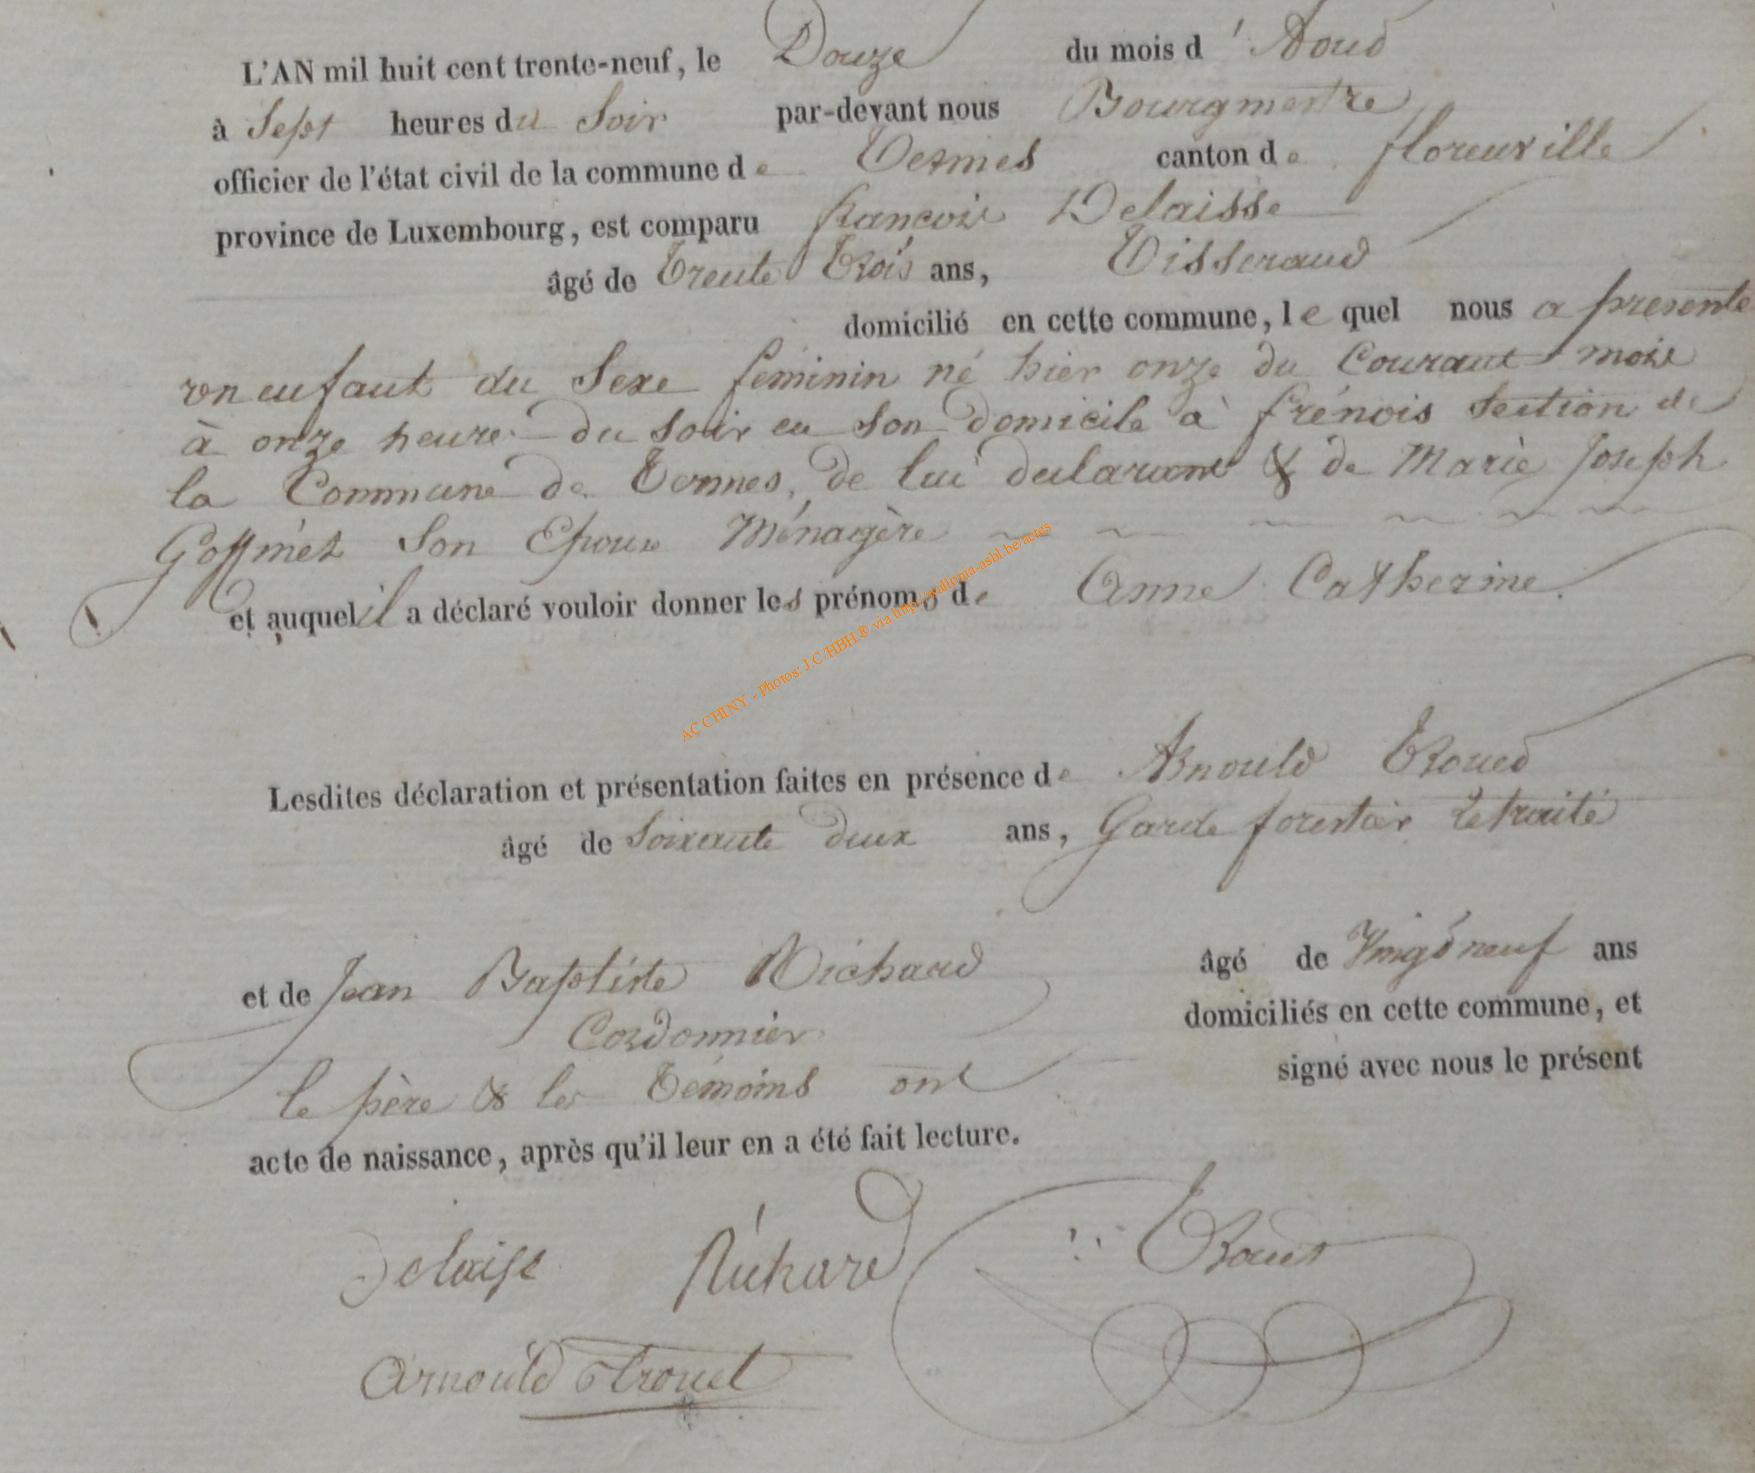 L'AN mil huit cent trente-neuf, le Douze du mois d'Aoud
à Sept heures du Soir par-devant nous Bourgmestre
officier de l'état civil de la commune de Termes canton de florenville
province de Luxembourg, est comparu françois Delaisse
âgé de Trente Trois ans, Tisserand
domicilié en cette commune, lequel nous a presenté
un enfant du Sexe féminin né hier onze du Courant mois
à onze heure du soir en son domicile à frénois Section de
la Commune de Termes, de lui déclarant & de Marie Joseph
Goffinet Son Epouse Ménagère
et auquel il a déclaré vouloir donner les prénoms de Anne Catherine.
AC CHINY - Photos: J.C.HBH ® via
Lesdites déclaration et présentation faites en présence de Arnould Troued
âgé de Soixante deux ans, Garde forestier retraité
et de Jean Baptiste Richard âgé de Vingt neuf ans
Cordonnier domiciliés en cette commune, et
le père & les Témoins ont signé avec nous le présent
acte de naissance, après qu'il leur en a été fait lecture.
Delaisse Richard Trouet
Arnould Trouet